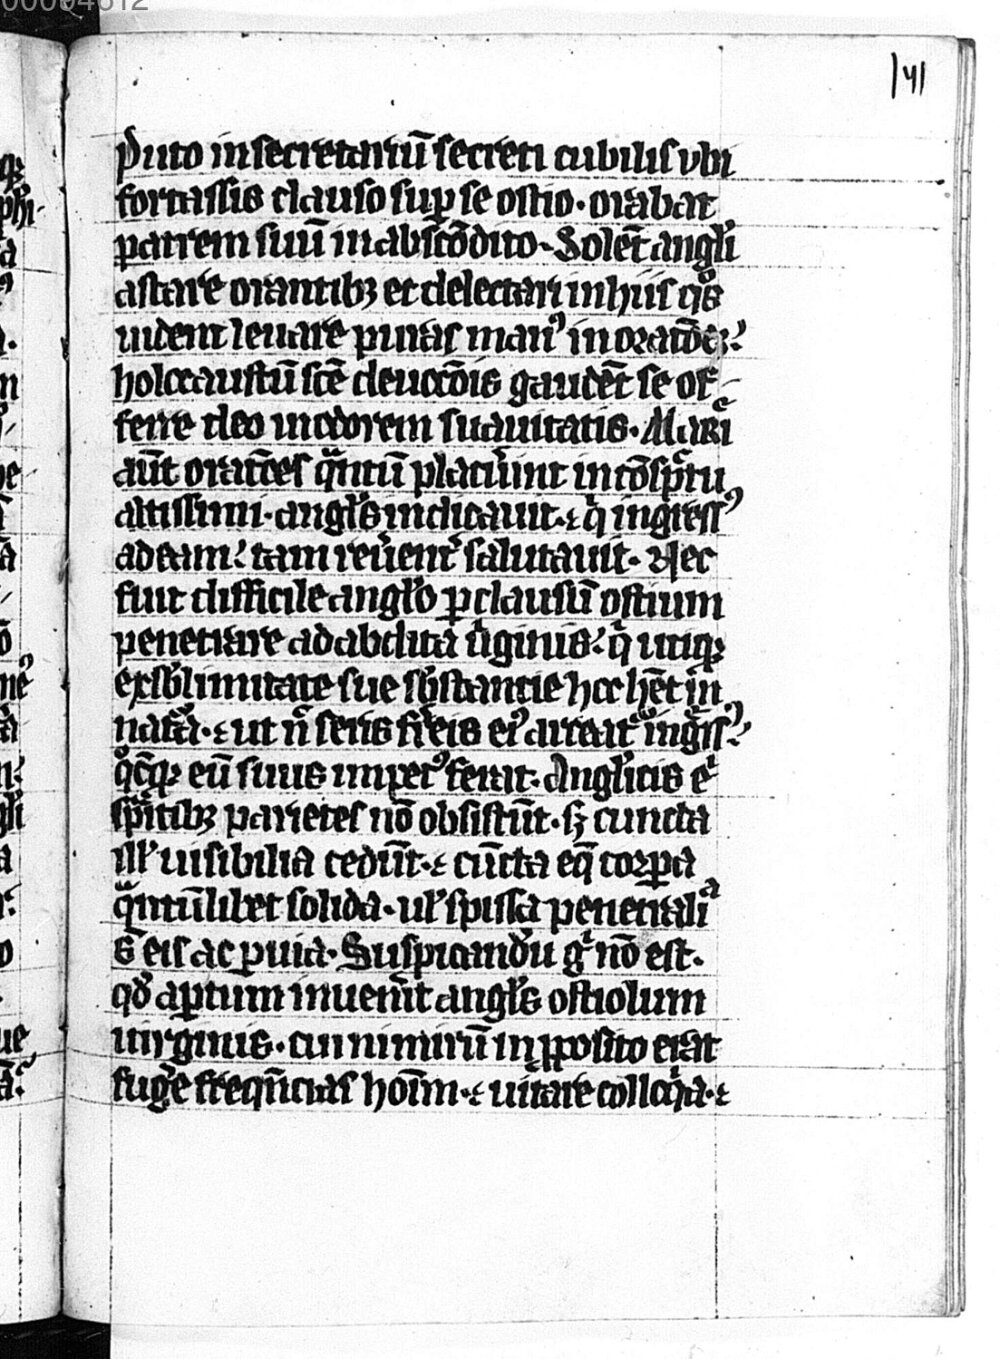 00004612
141
Puto in secretariū secreti cubilis vbi
fortassis clauso sup̱ se ostio. orabat
patrem suū in abscōdito. Solēt angľi
astare orantibꝫ et delectari in hiis qͦs
uident leuare puras manꝰ in oratōe
holocaustū scē deuocōis gaudēt se of
ferre deo in odorem suauitatis. Marī
aūt oratōes qͣntū placuı̄nt in cōspc̄tu
altissimi. angľs indicauit. ⁊ qͥ ingressꝰ
ad eam? tam reuēntͬ salutauit. Nec
fuit difficile angľo ꝑ clausū ostium
penetrare ad abdita ūginis? qͥ utiqꝫ
ex sb̄limitate sue sb̄stancie hoc hēt in
natū. ⁊ ut n̄ seris fr̄eis eiꝰ arceatͬ ingssꝰ?
qͦcūqꝫ eū suus impetꝰ ferat. Angľicis ēͥ
spiritibꝫ parietes nō obsistūt. sꝫ cuncta
illꝰ uisibilia cedūt. ⁊ cūcta eqͥ corꝑa
qͣntūlibet solida. ul̓ spissa penetrali
ꝰ eis ac puia. Suspicandū gͦ nō est.
qđ aꝑtum inuenı̄t angľs ostiolum
uirginis. cui nimirū in ꝓposito erat
fuge̓ freqn̄cias hoīm. ⁊ uitare colloqͥa. ⁊